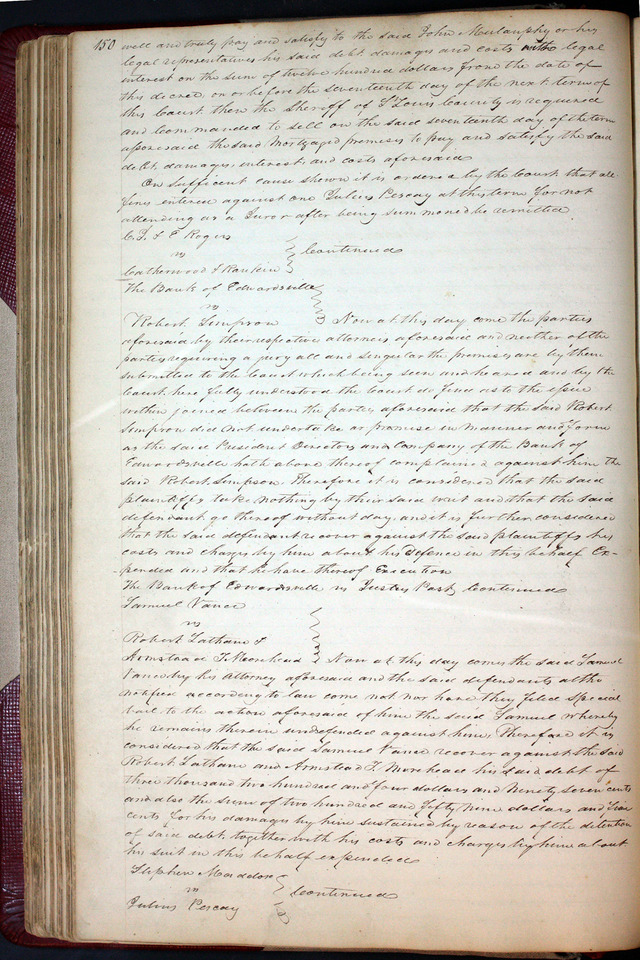 150 well and truly pay and satisfy to the said John Mullanphy or his
legal representatives his said debt damages and costs with legal
interest on the sum of twelve hundred dollars from the date of
this decree on or before the seventeenth day of the next term of
this Court then the Sheriff of St Louis County is required
and Commanded to sell on the said seventeenth day of the term
aforesaid the said Mortgaged premises to pay and satisfy the said
debt, damages, interest and costs aforesaid
On sufficient cause shewn it is ordered by the Court that the
fines entered against one Julius Pescay at this term for not
attending as a Juror after being summoned be remitted
C. J. & P. Rogers
vs } Continued
Catherwood & Rankin
The Bank of Edwardsville
vs
Robert Simpson } Now at this day come the parties
aforesaid by their respective attornies aforesaid and neither of the
parties requiring a jury all and singular the premises are by them
submitted to the Court which being seen and heard and by the
Court here fully understood the Court do find as to the issue
within joined between the parties aforesaid that the said Robert
Simpson did not undertake or promise in manner and form
as the said President Directors and Company of the Bank of
Edwardsville hath above thereof complained against him the
said Robert Simpson. Therefore it is considered that the said
plaintiffs take nothing by their said writ and that the said
defendant go thereof without day, and it is further considered
that the said defendant recover against the said plaintiffs his
costs and charges by him about his defence in this behalf Ex-
pended and that he have thereof Execution
The Bank of Edwardsville vs Justus Post Continued
Samuel Vance
vs
Robert Latham &
Armstead T. Morehead } Now at this day comes the said Samuel
Vance by his Attorney aforesaid and the said defendants altho
notified according to law come not nor have they filed special
bail to the action aforesaid of him the said Samuel whereby
he remains therein undefended against him. Therefore it is
considered that the said Samuel Vance recover against the said
Robert Latham and Armstead T. Morehead his said debt of
three thousand two hundred and four dollars and Ninety seven cents
and also the sum of two hundred and fifty Nine dollars and five
cents for his damages by him sustained by reason of the detention
of said debt, together with his costs and charges by him about
his suit in this behalf expended
Stephen Maddox
vs } Continued
Julius Pescay